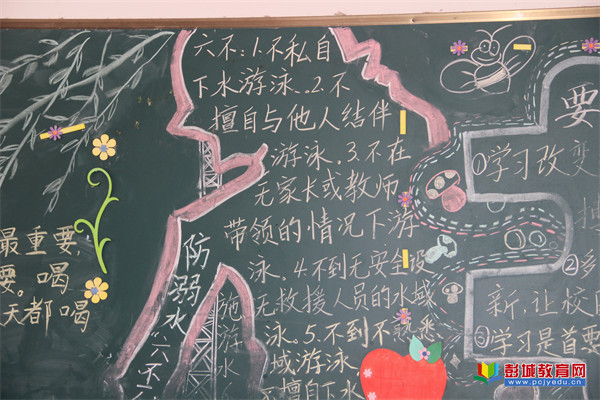 六不：1.不私自
下水游泳。2.不
擅自与他人结伴
游泳.3.不在
无家长或教师
带领的情况下游
泳.4.不到无安全设
施无救援人员的水域
游泳.5.不到不熟悉
水域游泳
不擅自下水
防溺水“六不”
最重要
要。喝
天都喝
要
①学习改变
②多
新，让校
③学习是首要
彭城教育网
www.pcjyedu.cn